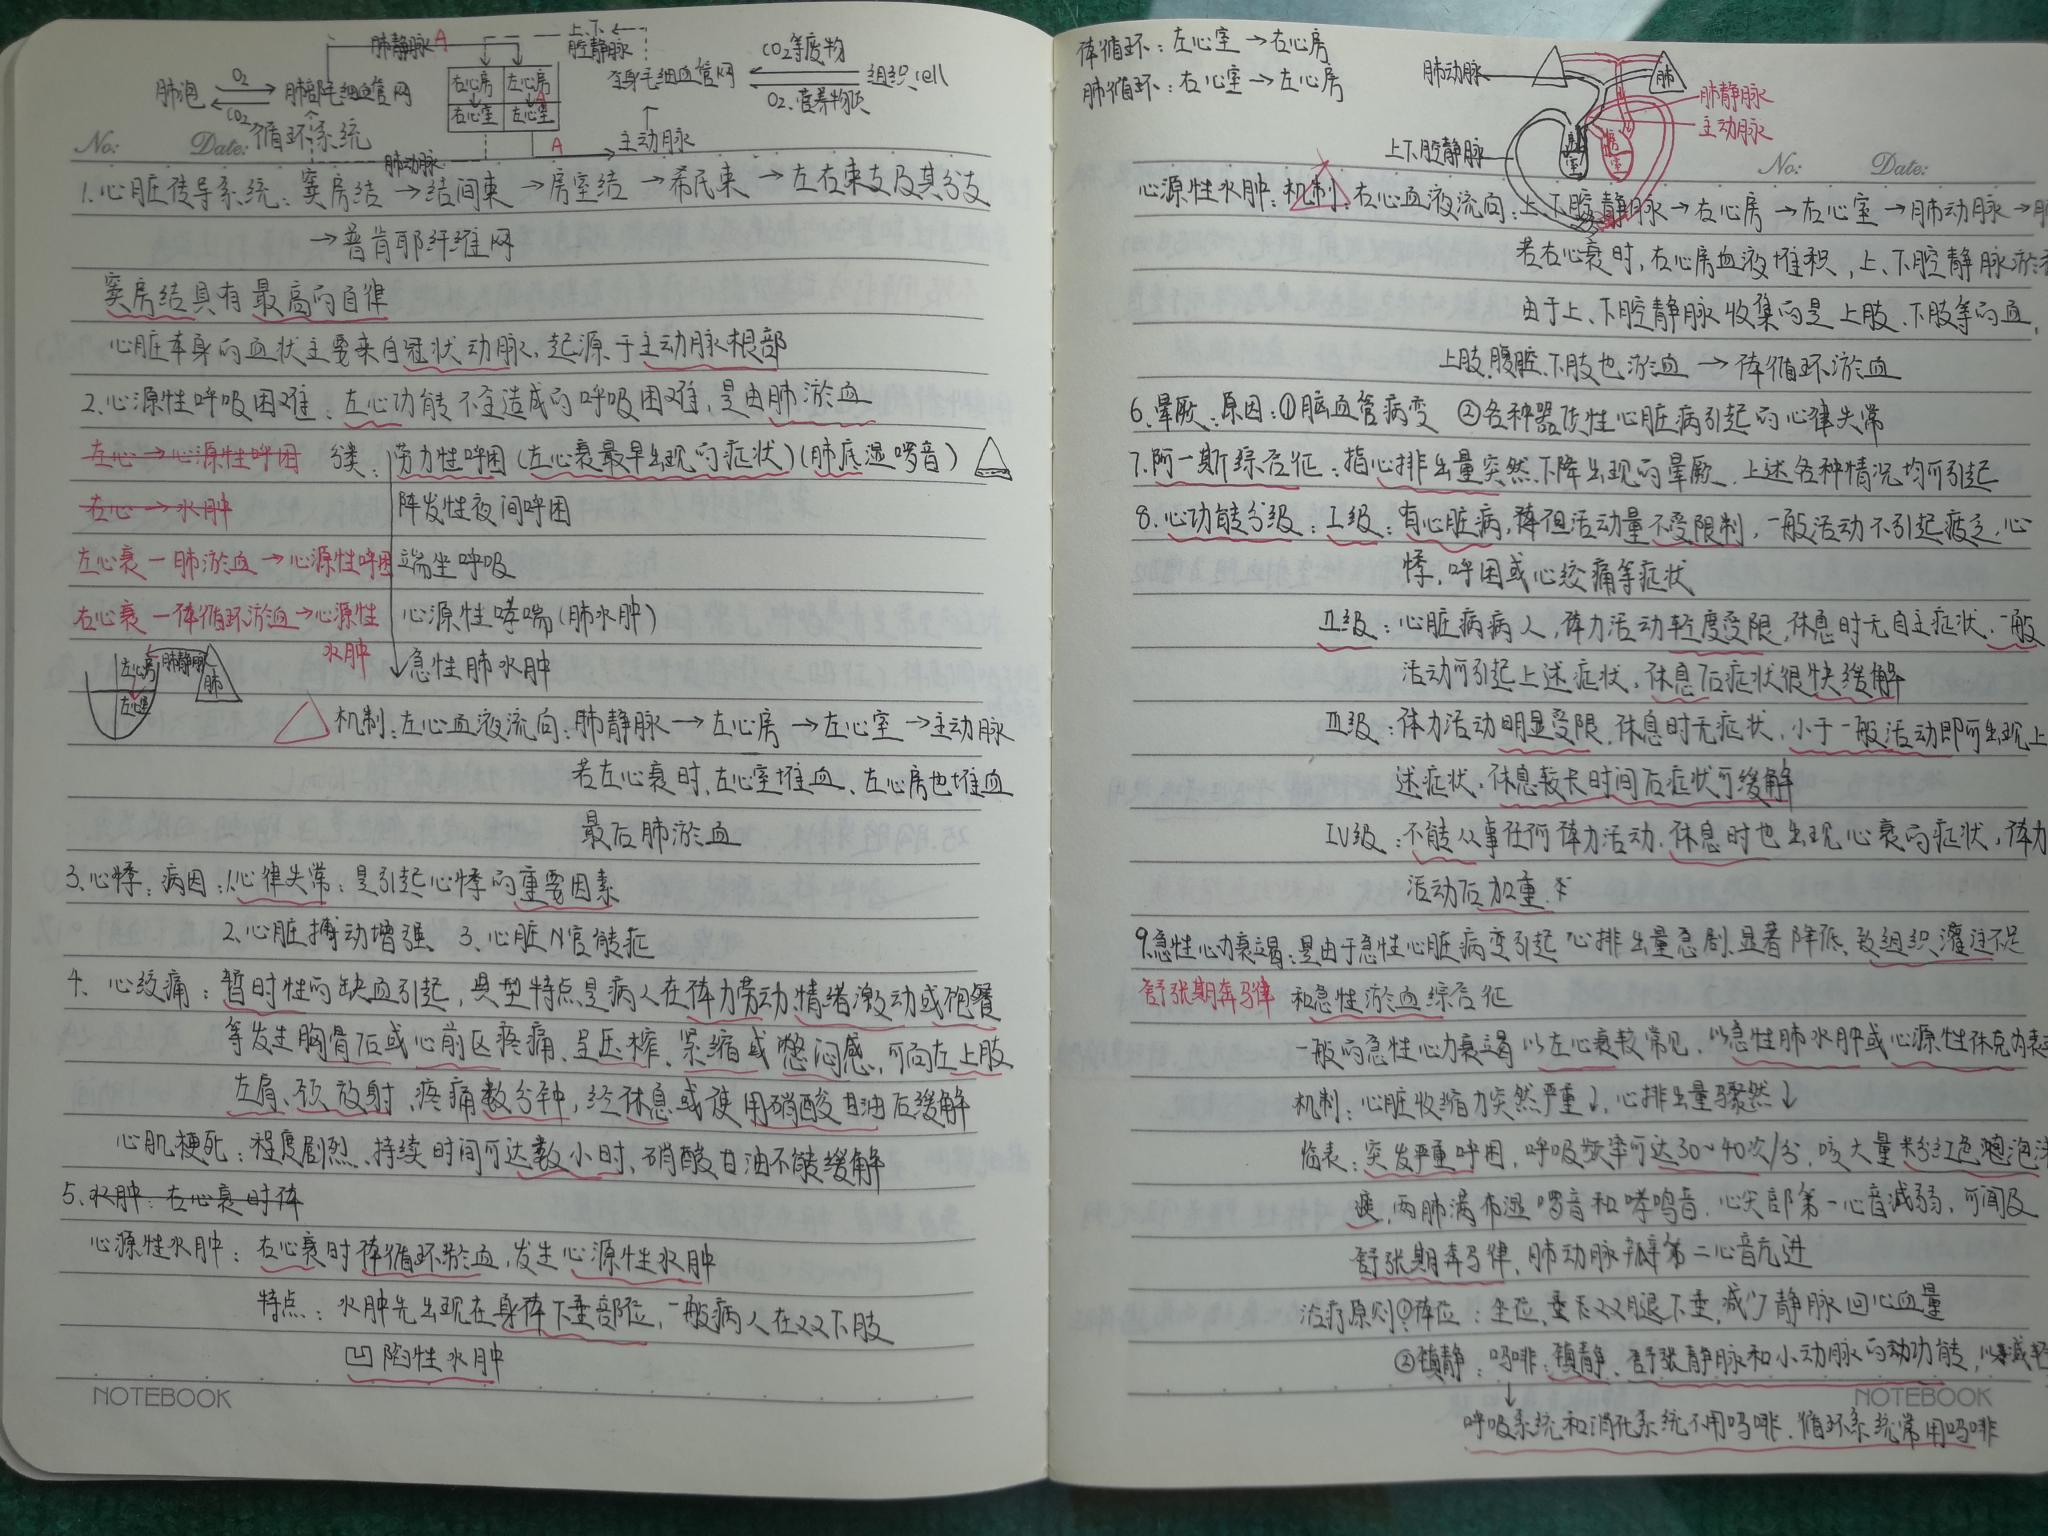 肺静脉 A
上、下
腔静脉
CO2等废物
肺泡 O2 CO2 肺部毛细血管网
右心房 左心房
右心室 左心室
A
全身毛细血管网
组织cell
O2.营养物质
No: Date: 循环系统
肺动脉
A
主动脉
1.心脏传导系统:窦房结→结间束→房室结→希氏束→左右束支及其分支
→普肯耶纤维网
窦房结具有最高的自律
心脏本身的血状主要来自冠状动脉,起源于主动脉根部
2.心源性呼吸困难:左心功能不全造成的呼吸困难,是由肺淤血
左心→心源性呼困 分类:劳力性呼困(左心衰最早出现的症状)(肺底湿啰音)
右心→水肿 阵发性夜间呼困
左心衰—肺淤血→心源性呼困 端坐呼吸
右心衰—体循环淤血→心源性 心源性哮喘(肺水肿)
水肿 急性肺水肿
左心房 肺静脉 肺
左心室
机制:左心血液流向:肺静脉→左心房→左心室→主动脉
若左心衰时,左心室堆血、左心房也堆血
最后肺淤血
3.心悸:病因:1.心律失常:是引起心悸的重要因素
2.心脏搏动增强、3.心脏N官能症
4、心绞痛:暂时性的缺血引起,典型特点是病人在体力劳动、情绪激动或饱餐
等发生胸骨后或心前区疼痛、呈压榨、紧缩或憋闷感,可向左上肢
左肩、颈放射、疼痛数分钟,经休息或使用硝酸甘油后缓解
心肌梗死:程度剧烈、持续时间可达数小时、硝酸甘油不能缓解
5.水肿:右心衰时体
心源性水肿:右心衰时体循环淤血,发生心源性水肿
特点:水肿先出现在身体下垂部位,一般病人在双下肢
凹陷性水肿
NOTEBOOK
体循环:左心室→右心房
肺循环:右心室→左心房
肺动脉
肺
肺静脉
主动脉
房 室 房 室
上下腔静脉
No: Date:
心源性水肿:机制:右心血液流向:上、下腔静脉→右心房→右心室→肺动脉→
若右心衰时,右心房血液堆积,上、下腔静脉淤
由于上、下腔静脉收集的是上肢、下肢等的血,
上肢.腹腔.下肢也淤血→体循环淤血
6.晕厥:原因:①脑血管病变 ②各种器质性心脏病引起的心律失常
7.阿—斯综合征:指心排出量突然下降出现的晕厥.上述各种情况均可引起
8.心功能分级:I级:有心脏病,体但活动量不受限制,一般活动不引起疲乏,心
悸,呼困或心绞痛等症状
II级:心脏病病人,体力活动轻度受限,休息时无自主症状,一般
活动可引起上述症状,休息后症状很快缓解
III级:体力活动明显受限.休息时无症状,小于一般活动即可出现上
述症状,休息较长时间后症状可缓解
IV级:不能从事任何体力活动.休息时也出现心衰的症状,体力
活动后加重
9.急性心力衰竭:是由于急性心脏病变引起心排出量急剧.显著降低,致组织灌注不足
舒张期奔马律 和急性淤血综合征
一般的急性心力衰竭以左心衰较常见,以急性肺水肿或心源性休克为表
机制:心脏收缩力突然严重↓,心排出量骤然↓
临表:突发严重呼困,呼吸频率可达30~40次/分,咳大量粉红色泡沫
痰,两肺满布湿啰音和哮鸣音.心尖部第一心音减弱,可闻及
舒张期奔马律,肺动脉瓣第二心音亢进
治疗原则:①体位:坐位,双腿下垂,减少静脉回心血量
②镇静:吗啡:镇静、舒张静脉和小动脉的动功能,以减
NOTEBOOK
呼吸系统和消化系统不用吗啡.循环系统常用吗啡